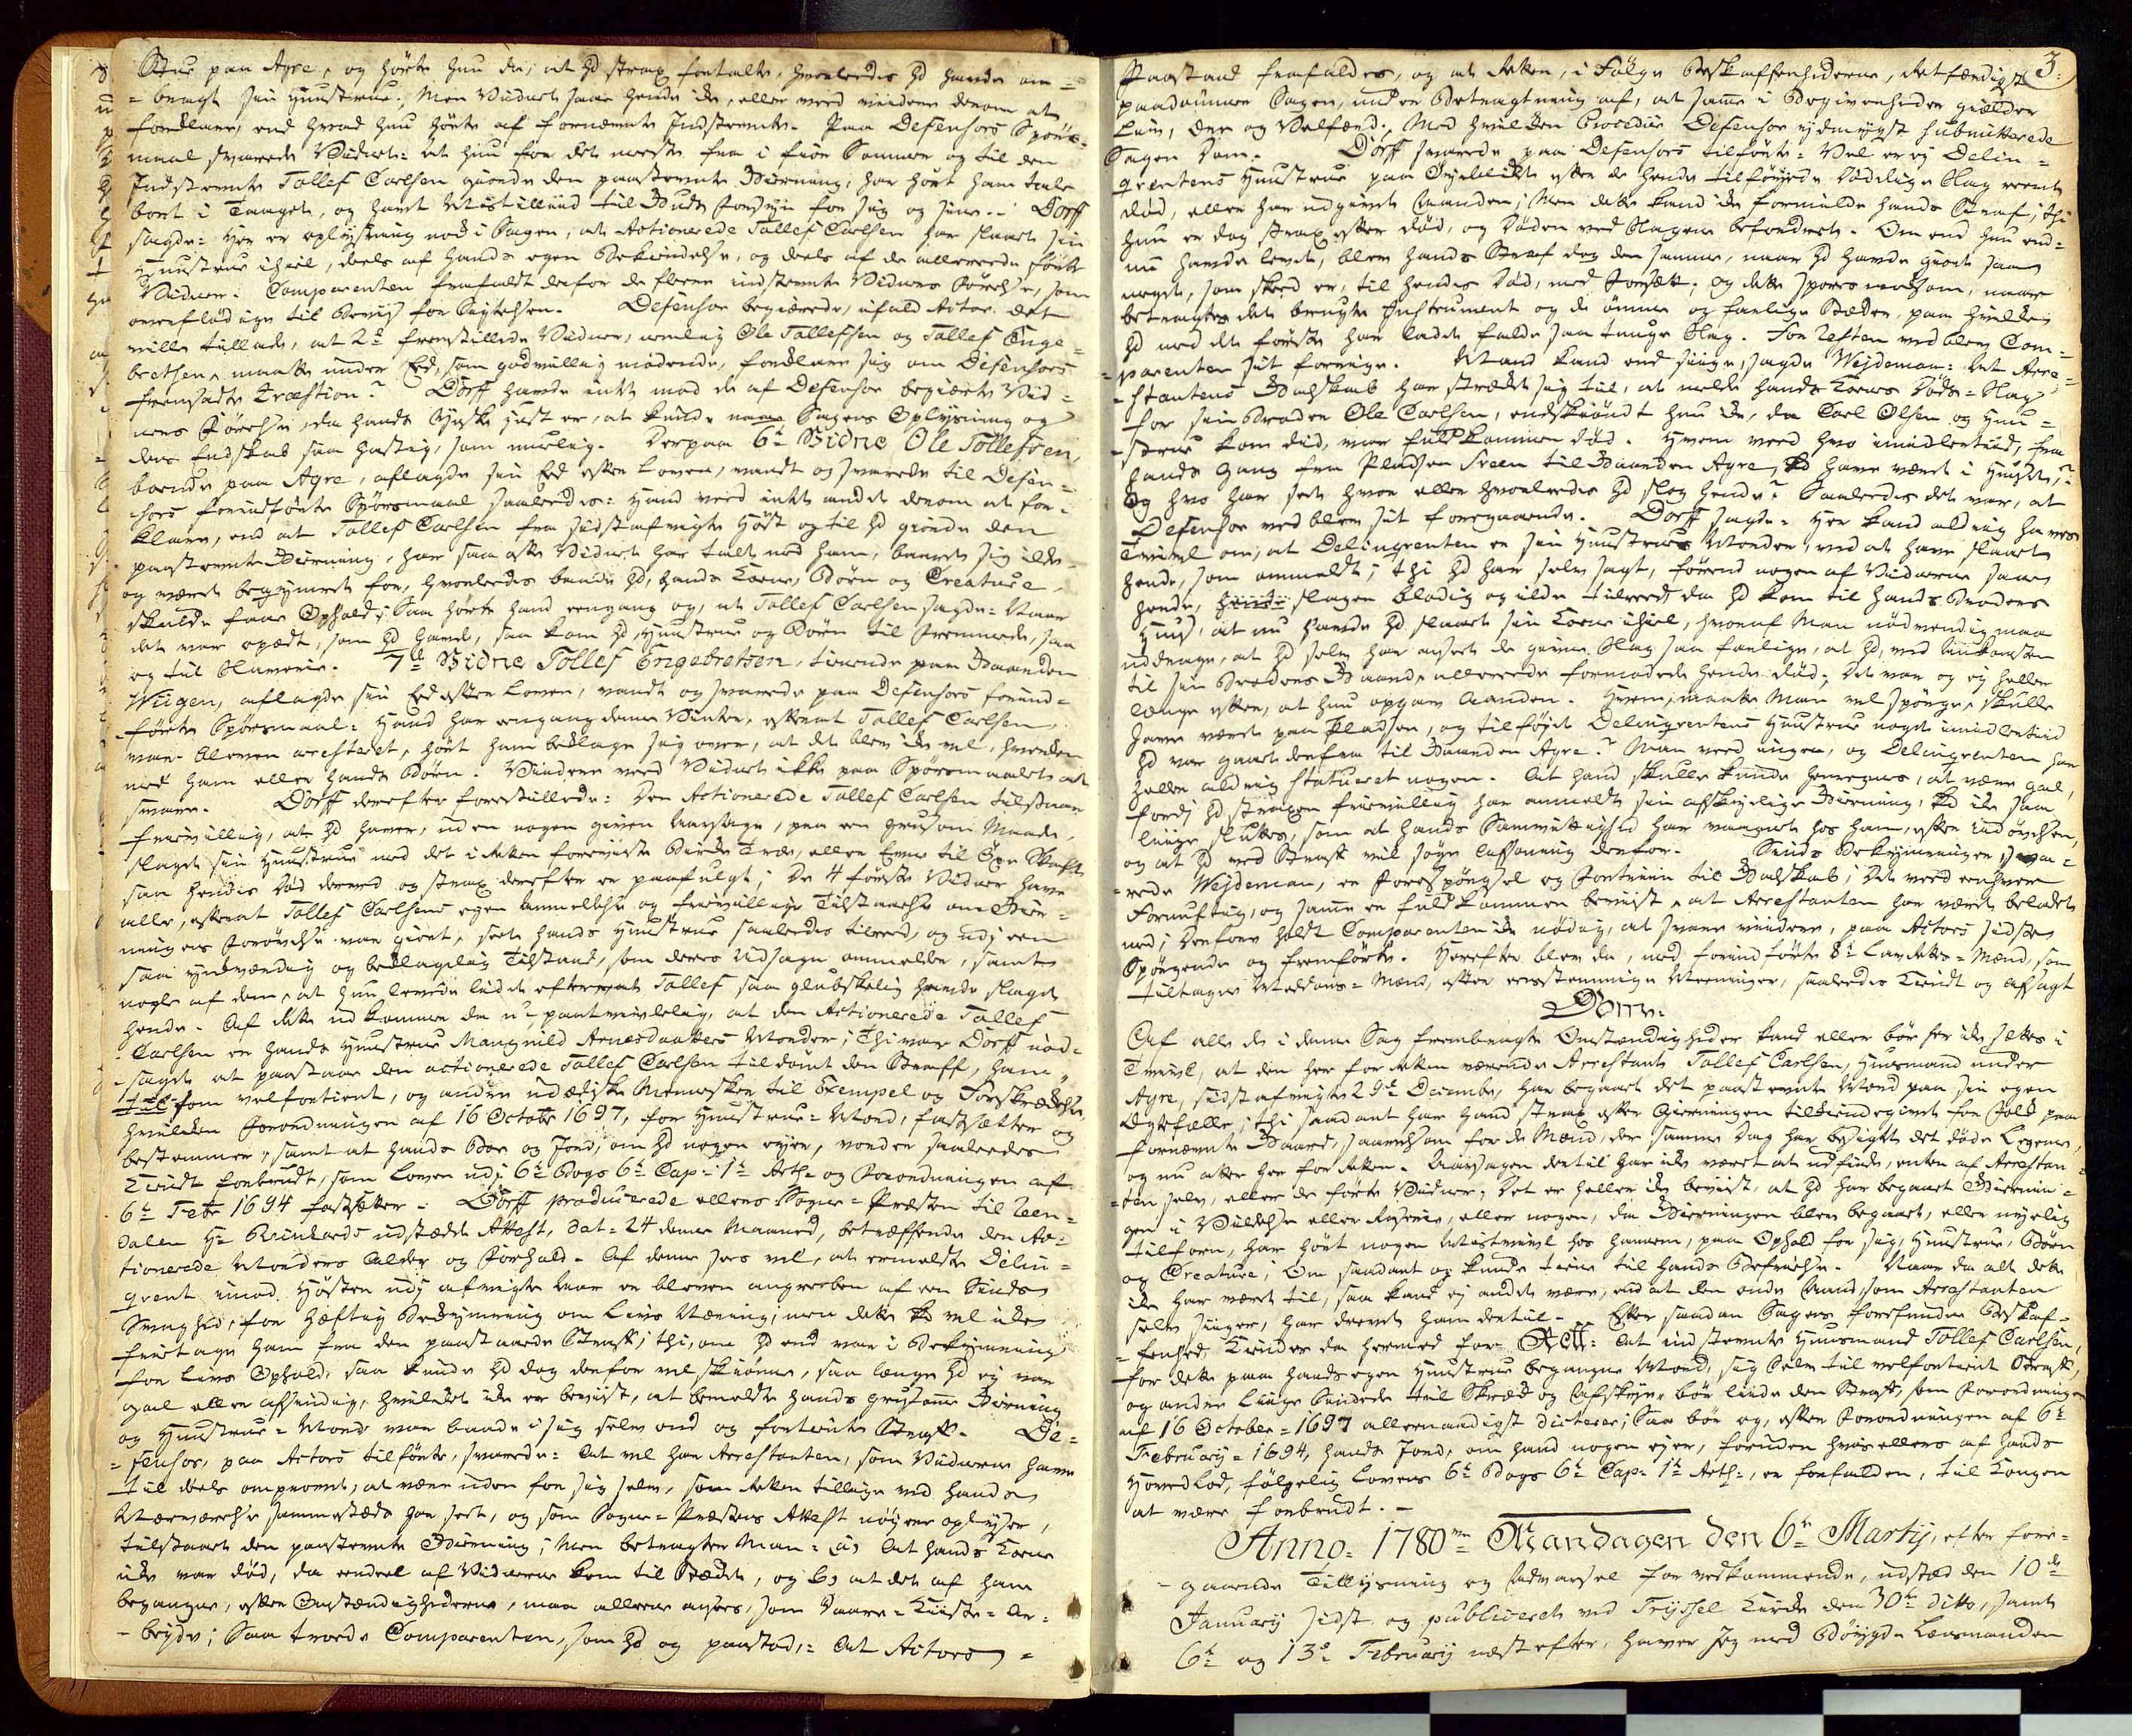 Stue paa Agre, og hörte hun da, at hd strax fortalte, hvorledes hd havde om-
-bragt sin Huustrue; Men Vidnet saae hende ikke, eller veed videre derom at
forklare, end hvad hun hörte af fornævnte Indstevnte. Paa Defensors Spörs-
maal svarede Vidnet: at hun for det meste fra i fior Sommer og til den
Indstevnte Tollef Carlsen giorde den paastevnte Gierning, har hört ham tale
bort i Taaget, og havt Mistilliid til Guds Forsyn for sig og sine. Dorff
sagde: Her er oplysning nok i Sagen, at Actionerede Tollef Carlsen har slaaet sin
Huustrue ihiel, deels af hands egen Bekiendelse, og deels af de allereede förte
Vidner. Comparenten frafaldt derfor de fleere indstevnte Vidners Förelse, som
overflödige til Beviis for Sigtelsen. Defensor begiærede, ifald Actor det
ville tillade, at 2de fremstillede Vidner, nemlig Ole Tollefsen og Tollef Enge-
brethsen, maatte under Eed, som godvillig mödende, forklare sig om Defensors
fremsadte Qvæstion? Dorff havde intet mod de af Defensor begiærte Vid-
ners Förelse, da hands Hyste just er, at kunde Sagens Oplysning og
dens Endskab saa hastig, som muelig. Derpaa 6te Vidne Ole Tollefsen,
boende paa Agre, aflagde sin Eed efter Loven, vandt og svarede til Defen-
sors forindförte Spörsmaal saaledes: Hand veed intet andet derom at for-
klare, end at Tollef Carlsen fra sidstafvigte Höst og til hd giorde den
paastevnte Gierning, har saa ofte Vidnet har talt med ham, baaret sig ilde
og været bekymret for, hvorledes baade hd, hands Kone, Börn og Creature
skulde faae Ophold; Saa hörte hand eengang og, at Tollef Carlsen sagde: Naar
det var opædt, som hd havde, saa kom hd, Huustrue og Börn til Fremmede, saa
og til Slaverie. 7de Vidne Tollef Engebretsen, tienende paa Gaarden
Wiigen, aflagde sin Eed efter Loven, vandt og svarede paa Defensors forind-
förte Spörsmaal: Hand har eengang denne Vinter, efterat Tollef Carlsen
var bleven arresteret, hört ham beklage sig over, at det blev ikke vel, hverken
med ham eller hands Börn. Videre veed Vidnet ikke paa Spörsmaalet at
svare. Dorff derefter forestillede: Den Actionerede Tollef Carlsen tilstaaer
frievillig, at hd haver, uden nogen given Aarsage, paa en grusom Maade,
slaget sin Huustrue med det i Retten foreviiste Birke Træe, eller Emne til Öxe Skaft,
saa hendes Död derved og strax derefter er paafulgt; De 4 förste Vidner have
alle, efterat Tollef Carlsens egen anmeldelse og frievillige Tilstaaelse om Gier-
ningens Forövelse var giort, seet hands Huustrue saaledes tilreed, og udi een
saa ynkværdig og beklagelig Tilstand, som deres Udsagn ommelder, samt
nogle af dem, at hun levede lidet efterat Tollef saa glubskelig havde slaget
hende. Af dette udkommer da u-paatvivlelig, at den Actionerede Tollef
Carlsen er hands Huustrue Mangnild Arnesdaatters Morder; Thi var Dorff nöd-
sagt at paastaae den actionerede Tollef Carlsen tildömt den Straff, ham
som velfortient, og andre udædiske Mennesker til Exempel og Forskrækkelse,
hvilken Forordningen af 16 Octobr 1697, for Huustrue-Mord, fastsætter og
bestemmer, samt at hands Boe og Jord, om hd nogen ejer, vorder saaledes
Kiendt forbrudt, som Loven udj 6te Bogs 6te Cap: 1te Art: og Forordningen af
6te Febr 1694 fastsetter. Dorff producerede ellers Sogne-Præsten til Reen-
dalen Hr Reinhards udstædte Attest, dat: 24 denne Maaned, betræffende den Ac-
tionerede Morders Alder og Forhold. Af denne sees vel, at ermeldte Delin-
qvent imod Hösten udj afvigte Aar er bleven angreben af een Sinds
Svaghed, for Hæftig Bekymring om Livs Næring; men dette kd vel ikke
fritage ham fra den paastaaede Straff; thi, om hd end var i Bekymring
for Livs Ophold, saa kunde hd dog derfor vel skiönne, saa længe hd ej var
gal eller afsindig, hvilket ikke er beviist, at bemeldte hands grusomme Gierning
og Huustrue-Mord var baade i sig selv ond og fortiente Straff. De-
-fensor, paa Actors tilförte, svarede: At vel har Arrestanten, som Vidnerne have
til deels ompröved, at være uden for sig selv, som Retten tillige ved hands
Nærværelse sammesteds har seet, og som Sogne-Præstens Attest nöyere oplyser,
tilstaaet den paastevnte Gierning; Men betragter Man: a) At hands Kone
ikke var död, da eendeel af Vidnerne kom til Stædet, og b) at det af ham
begangne, efter Omstændighederne, maa allene ansees, som Vaare-Kiiste-Ar-
-bejde; Saa troede Comparenten, som hd og paastod,: At Actors
3.
Paastand frafaldes, og at Retten, i Fölge Beskaffenhederne, retfærdigst
paadömmer Sagen, under Betragtning af, at samme i Begivenheden gielder
Liv, Ære og Velfærd; Med hvilken Procedure Defensor ydmygst submitterede
Sagen Dom. Dorff svarede paa Defensors tilförte: Vel er ej Delin-
qventens Huustrue paa Öyeblikket efter de hende tilföyede Dödelige Slag reent
död, eller har udgivet Aanden; Men dette kand ikke formilde hands Straf; thi
hun er dog strax efter död, og Döden ved Slagene befordret. Om end hun end-
nu havde levet, blev hands Straf dog den samme, naar hd havde giort saa
meget, som skeed er, til hendes Död, med Forsæt; og dette spores noksom, naar
betragtes det brugte Instrument og de ömme og farlige Stæder, paa hvilke
hd med det förste har ladet falde saa tunge Slag. For Resten ved blev Com-
-parenten sit forrige. Mand kand end siige, sagde Wejdeman: At Arre-
-stantens Galskab har strækt sig til, at melde hands Kones Döds-Slag
for sin Broder Ole Carlsen, endskiöndt hun ikke, da Carl Olsen og Huu-
-strue kom did, var fuldkommen död. Hvem veed hvo imidlertiid, fra
hands Gang fra Pladsen Sveen til Gaarden Agre, kd have været i Huuset,?
Og hvo har seet hvor eller hvorledes hd slog hende? Saaledes det var, at
Defensor ved blev sit foregaaende. Dorff sagde: Her kand aldrig haves
Tvivl om, at Delinqventen er sin Huustrues Morder, ved at have slaaet
hende, som anmeldt; thi hd har selv sagt, förend nogen af Vidnerne saae
hende, slagen blodig og ilde tilreed, da hd kom til hands Broders
Huus, at nu havde hd slaaet sin Kone ihiel, hvoraf Man nödvendig maa
uddrage, at hd selv har anseet de givne Slag saa farlige, at hd, ved Ankomsten
til sin Broders Gaard, allereede formodede hende död; Det var og ej heller
længe efter, at hun opgav Aanden. Hvem, maatte Man vel spörge, skulle
have været paa Pladsen, og tilföjet Delinqventens Huustrue noget imidlertiid
hd var gaaet derfra til Gaarden Agre? Man veed ingen, og Delinqventen har
heller aldrig statueret nogen. At hand skulle kunde henregnes, at være gal,
fordj hd strax frievillig har anmeldt sin afskyelige Gierning, kd ikke saa
liige sluttes, som at hands Samvittighed har vaagnet hos ham, efter Udövelsen,
og at hd ved Straff vil söge Afsoning derfor. Sinds Bekymringer, sva-
-rede Wejdeman, er Forespöngsel og Fortrin til Galskab; Det veed eenhver
Fornuftig, og samme er fuldkommen beviist, at Arrestanten har været beladet
med; Derfore holdt Comparenten ikke nödig, at svare videre, paa Actors sidste
Spörgende og fremförte. Herefter blev da, med forindförte 8te Lavrettes-Mænd, som
tiltagne Meddoms-Mænd, efter eenstemmige Meeninger, saaledes Kiendt og Afsagt
Dom.
Af alle de i denne Sag frembragte Omstændigheder kand eller bör her ikke settes i
Tvivl, at den her for Retten værende Arrestant Tollef Carlsen, Huusmand under
Agre, sidst afvigte 29de Decembr, har begaaet det paastevnte Mord paa sin egen
Ægtefælle; thi saadant har hand strax efter Gierningen tilkiendegivet for Folk paa
fornævnte Gaard, saavelsom for de Mænd, der samme Dag har besigtet det döde Legeme,
og nu atter her for Retten. Aarsagen dertil har ikke været at udfinde, enten af Arrestan-
-ten selv, eller de förte Vidner; Det er heller ikke beviist, at hd har begaaet Giernin-
gen i Vildelse eller Raserie, eller nogen, da Gierningen blev begaaet, eller nyelig
tilforn, har hört nogen Mistvivl hos hannem, paa Ophold for sig, Huustrue, Börn
og Creature; Om saadant og kunde tiene til hands Befrielse. Naar da alt dette
ikke har været til, saa kand ej andet være, end at den onde Aand, som Arrestanten
selv siiger, har drevet ham dertil. Efter saadan Sagens forefundne Beskaf-
-fenhed, kiendes da hermed for Rett: At indstevnte Huusmand Tollef Carlsen,
for dette paa hands egen Huustrue begangne Mord, sig Selv til velfortient Straff,
og andre liige Sindede til Skræk og Afskye, bör liide den Straff, som Forordningen
af 16 October 1697 allernaadigst dicterer; Saa bör og, efter Forordningen af 6te
February 1694, hands Jord, om hand nogen ejer, foruden hvis ellers af hands
Hovedlod, fölgelig Lovens 6te Bogs 6te Cap: 1te Art:, er forfalden, til Kongen
at være forbrudt.
Anno 1780 Mandagen den 6te Martij, efter fore-
-gaaende Tillysning og Advarsel for vedkommende, udstæd den 10de
January sidst og publiceret ved Tryssel Kirke den 30te ditto, samt
6te og 13de February næst efter, haver Jeg med Böygde Lænsmanden